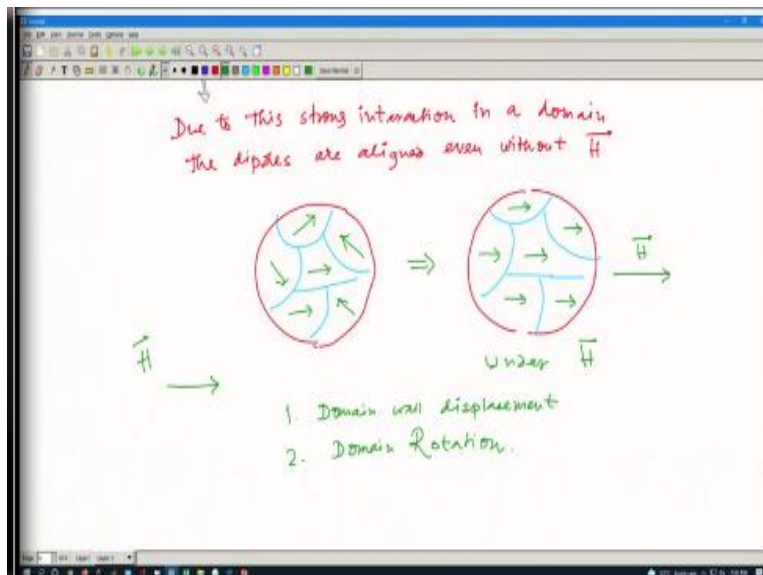 Due to this strong interaction in a domain
the dipoles are aligned even without H
H
under H
H
1. Domain wall displacement
2. Domain Rotation.